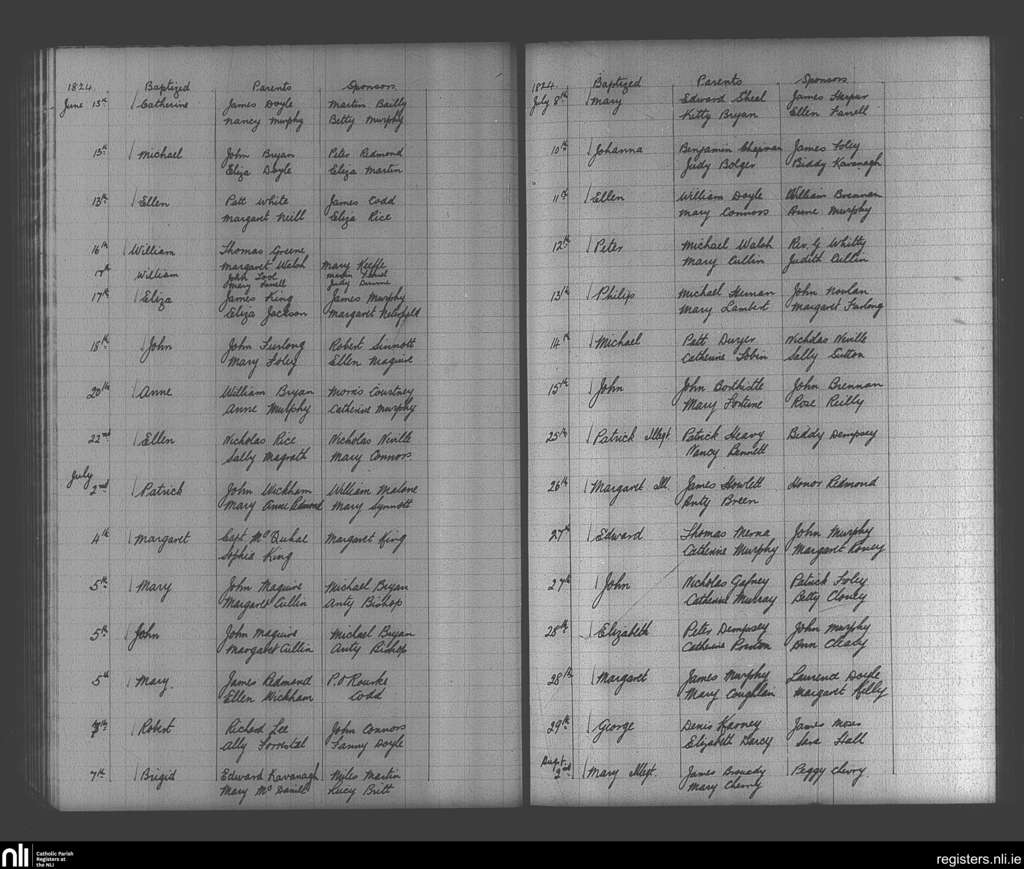 1824 Baptized Parents Sponsors
June 13th Catherine James Doyle Martin Bailly
Nancy Murphy Betty Murphy
13th Michael John Bryan Peter Redmond
Eliza Doyle Eliza Martin
13th Ellen Patt White James Codd
Margaret Neill Eliza Rice
16th William Thomas Greene
Margaret Walsh Mary Keeffe
17th William John
Mary Farrell Judy
17th Eliza James King James Murphy
Eliza Jackson Margaret
18th John John Furlong Robert Sinnott
Mary Foley Ellen Maguire
20th Anne William Bryan Morris Courtney
Anne Murphy Catherine Murphy
22nd Ellen Nicholas Rice Nicholas Neville
Sally Magrath Mary Connors
July
2nd Patrick John Wickham William Malone
Mary Anne Redmond Mary Synnott
4th Margaret Capt Mc Margaret King
Sophia King
5th Mary John Maguire Michael Bryan
Margaret Cullin Anty Bishop
5th John John Maguire Michael Bryan
Margaret Cullin Anty Bishop
5th Mary James Redmond P. O Rourke
Ellen Wickham Codd
7th Robert Richard Lee John Connors
Ally Forrestal Fanny Doyle
7th Brigid Edward Kavanagh Myles Martin
Mary Mc Daniel Lucy Britt
1824 Baptized Parents Sponsors
July 8th Mary Edward Sheal James Harper
Kitty Bryan Ellen Farrell
10th Johanna Benjamin Chapman James Foley
Judy Bolger Biddy Kavanagh
11th Ellen William Doyle William Brennan
Mary Connors Anne Murphy
12th Peter Michael Walsh Rev. G Whitty
Mary Cullin Judith Cullin
13th Philip Michael Hernan John Nowlan
Mary Lambert Margaret Furlong
14th Michael Patt Dwyer Nicholas Neville
Catherine Tobin Sally Sutton
15th John John Bodkistle John Brennan
Mary Fortune Rose Reilly
25th Patrick Illegt. Patrick Heavy Biddy Dempsey
Nancy Bennett
26th Margaret Ill. James Howlett Honor Redmond
Anty Breen
27th Edward Thomas Merna John Murphy
Catherine Murphy Margaret Roney
27th John Nicholas Gafney Patrick Foley
Catherine Murray Betty Cloney
28th Elizabeth Peter Dempsey John Murphy
Catherine Ann Cleady
28th Margaret James Murphy Laurence Doyle
Mary Coughlan Margaret Kelly
29th George Denis Harney James Moses
Elizabeth Darcy Sara Hall
Augt.
2nd Mary Illegt. James Brouady Peggy Cherry
Mary Cherry
nli Catholic Parish
Registers at
the NLI
registers.nli.ie